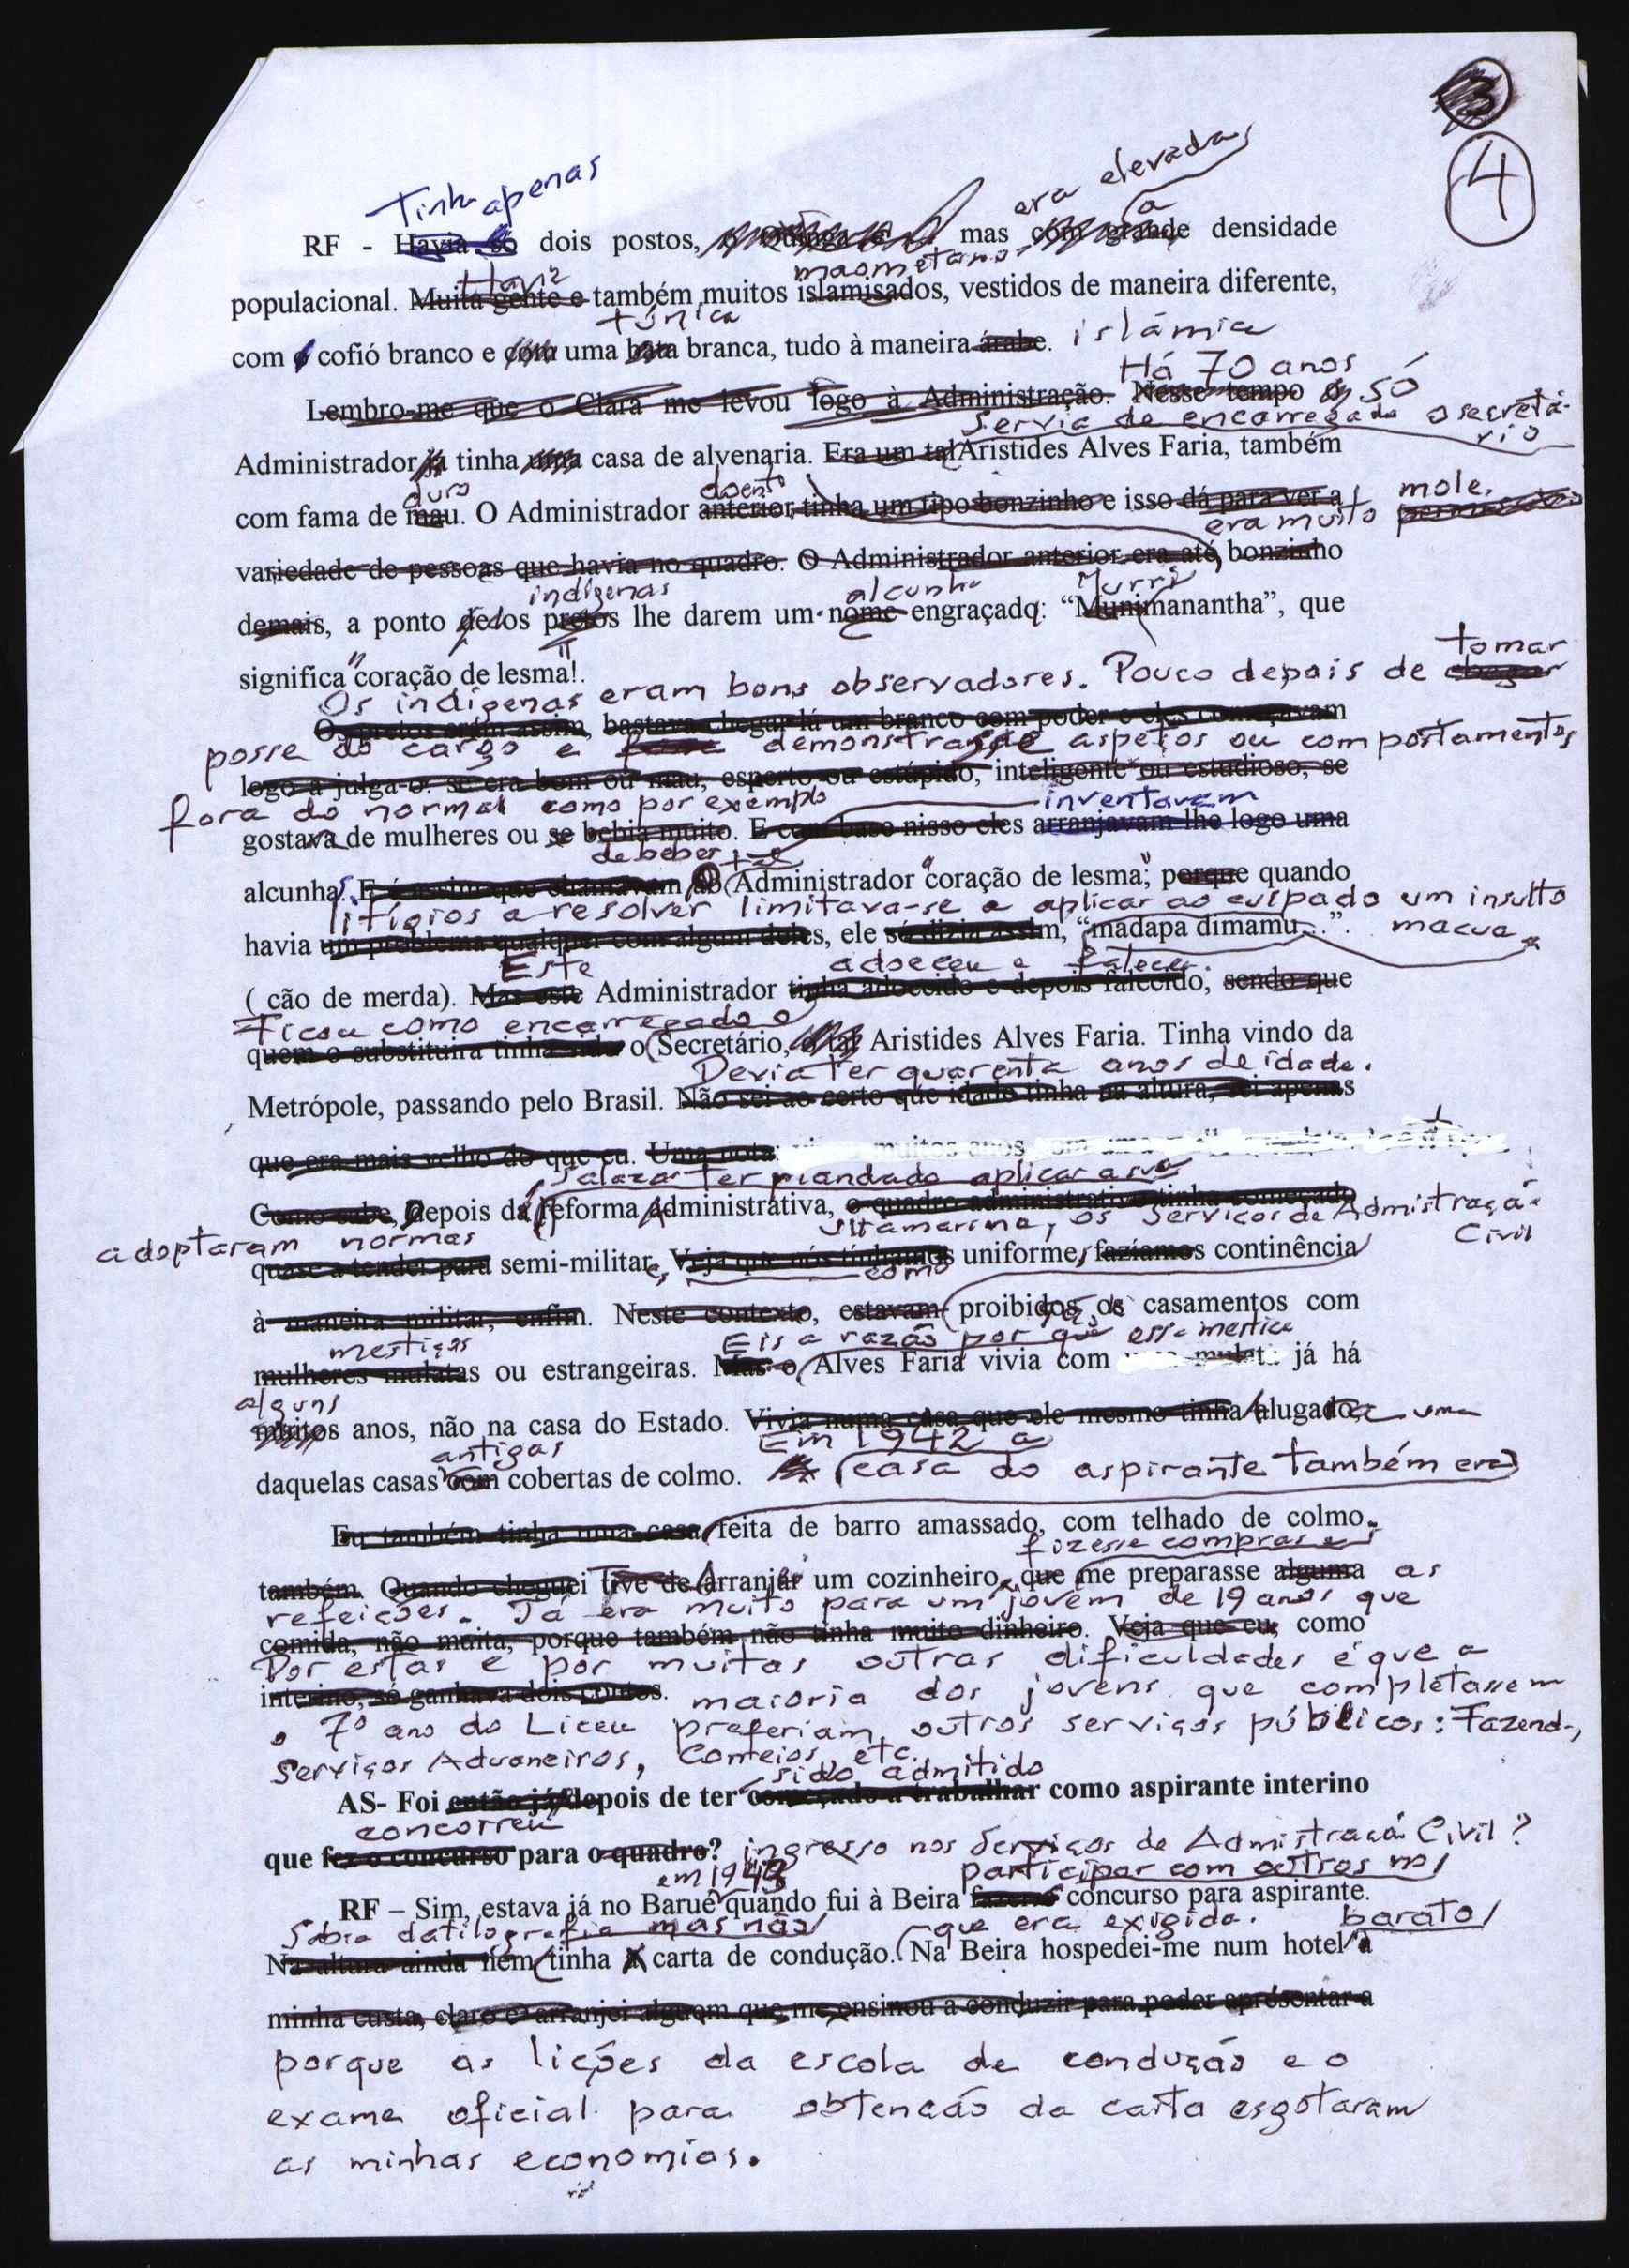 3
4
Tinha apenas
era elevada a
RF - Havia só dois postos, mas com grande densidade
Havia
maometanos
populacional. Muita gente e também muitos islamisados, vestidos de maneira diferente,
túnica
com o cofió branco e com uma bata branca, tudo à maneira árabe. islâmica
Há 70 anos
Lembro-me que o Clara me levou logo à Administração. Nesse tempo o só
Servia de encarregado o secretário
Administrador já tinha uma casa de alvenaria. Era um tal Aristides Alves Faria, também
duro
doente
mole.
com fama de mau. O Administrador anterior tinha um tipo bonzinho e isso dá para ver a
era muito
variedade de pessoas que havia no quadro. O Administrador anterior era até bonzinho
indígenas
alcunha
Murri
demais, a ponto de os pretos lhe darem um nome engraçado: “Munimanantha”, que
tomar
significa "coração de lesma"!.
Os indígenas eram bons observadores. Pouco depois de chegar
Os pretos eram assim, bastava chegar lá um branco com poder e eles começavam
posse do cargo e demonstrasse aspetos ou comportamentos
logo a julga-o: se era bom ou mau, esperto ou estúpido, inteligente ou estudioso, se
fora do normal como por exemplo
inventavam
gostava de mulheres ou se bebia muito. E com base nisso eles arranjavam lhe logo uma
de beber
tal
alcunha. E é assim que chamavam ao Administrador "coração de lesma"; porque quando
litígios a resolver limitava-se a aplicar ao culpado um insulto
havia um problema qualquer com algum deles, ele só dizia assim, “madapa dimamu...”. macua
Este
adoeceu e faleceu.
( cão de merda). Mas este Administrador tinha adoecido e depois falecido, sendo que
Ficou como encarregado o
quem o substituira tinha sido o Secretário, o tal Aristides Alves Faria. Tinha vindo da
Devia ter quarenta anos de idade.
Metrópole, passando pelo Brasil. Não sei ao certo que idade tinha na altura, sei apenas
que era mais velho do que eu. Uma nota: muitos anos
Salazar ter mandado aplicar a sua
Como sabe, depois da reforma administrativa, o quadro administrativo tinha começado
ultramarina, os Serviços de Admistração Civil
adoptaram normas
quase a tender para semi-militar. Veja que nós tínhamos uniforme, fazíamos continência
como
à maneira militar, enfim. Neste contexto, estavam proibidos os casamentos com
mestiças
Eis a razão por que essa mestiça
mulheres mulatas ou estrangeiras. Mas o Alves Faria vivia com uma mulata já há
alguns
muitos anos, não na casa do Estado. Vivia numa casa que ele mesmo tinha alugado uma
antigas
Em 1942 a
daquelas casas com cobertas de colmo. casa do aspirante também era
Eu também tinha uma casa feita de barro amassado, com telhado de colmo.
fizesse compras e
também. Quando cheguei tive de arranjar um cozinheiro, que me preparasse alguma as
refeições. Já era muito para um jovem de 19 anos que
comida, não muita, porque também não tinha muito dinheiro. Veja que eu, como
Por estas e por muitas outras dificuldades é que a
interino, só ganhava dois contos. maioria dos jovens que completassem
o 7º ano do Liceu preferiam outros serviços públicos: Fazenda,
Serviços Aduaneiros, Correios, etc.
sido admitido
AS- Foi então já depois de ter começado a trabalhar como aspirante interino
concorreu
que fez o concurso para o quadro? ingresso nos Serviços de Admistração Civil?
em 1943
participar com outros no
RF – Sim, estava já no Barué quando fui à Beira fazer o concurso para aspirante.
Sabia datilografia mas não
que era exigida.
barato
Na altura ainda nem tinha a carta de condução. Na Beira hospedei-me num hotel à
minha custa, claro e arranjei alguem que me ensinou a conduzir para poder apresentar a
porque as lições da escola de condução e o
exame oficial para obtenção da carta esgotaram
as minhas economias.